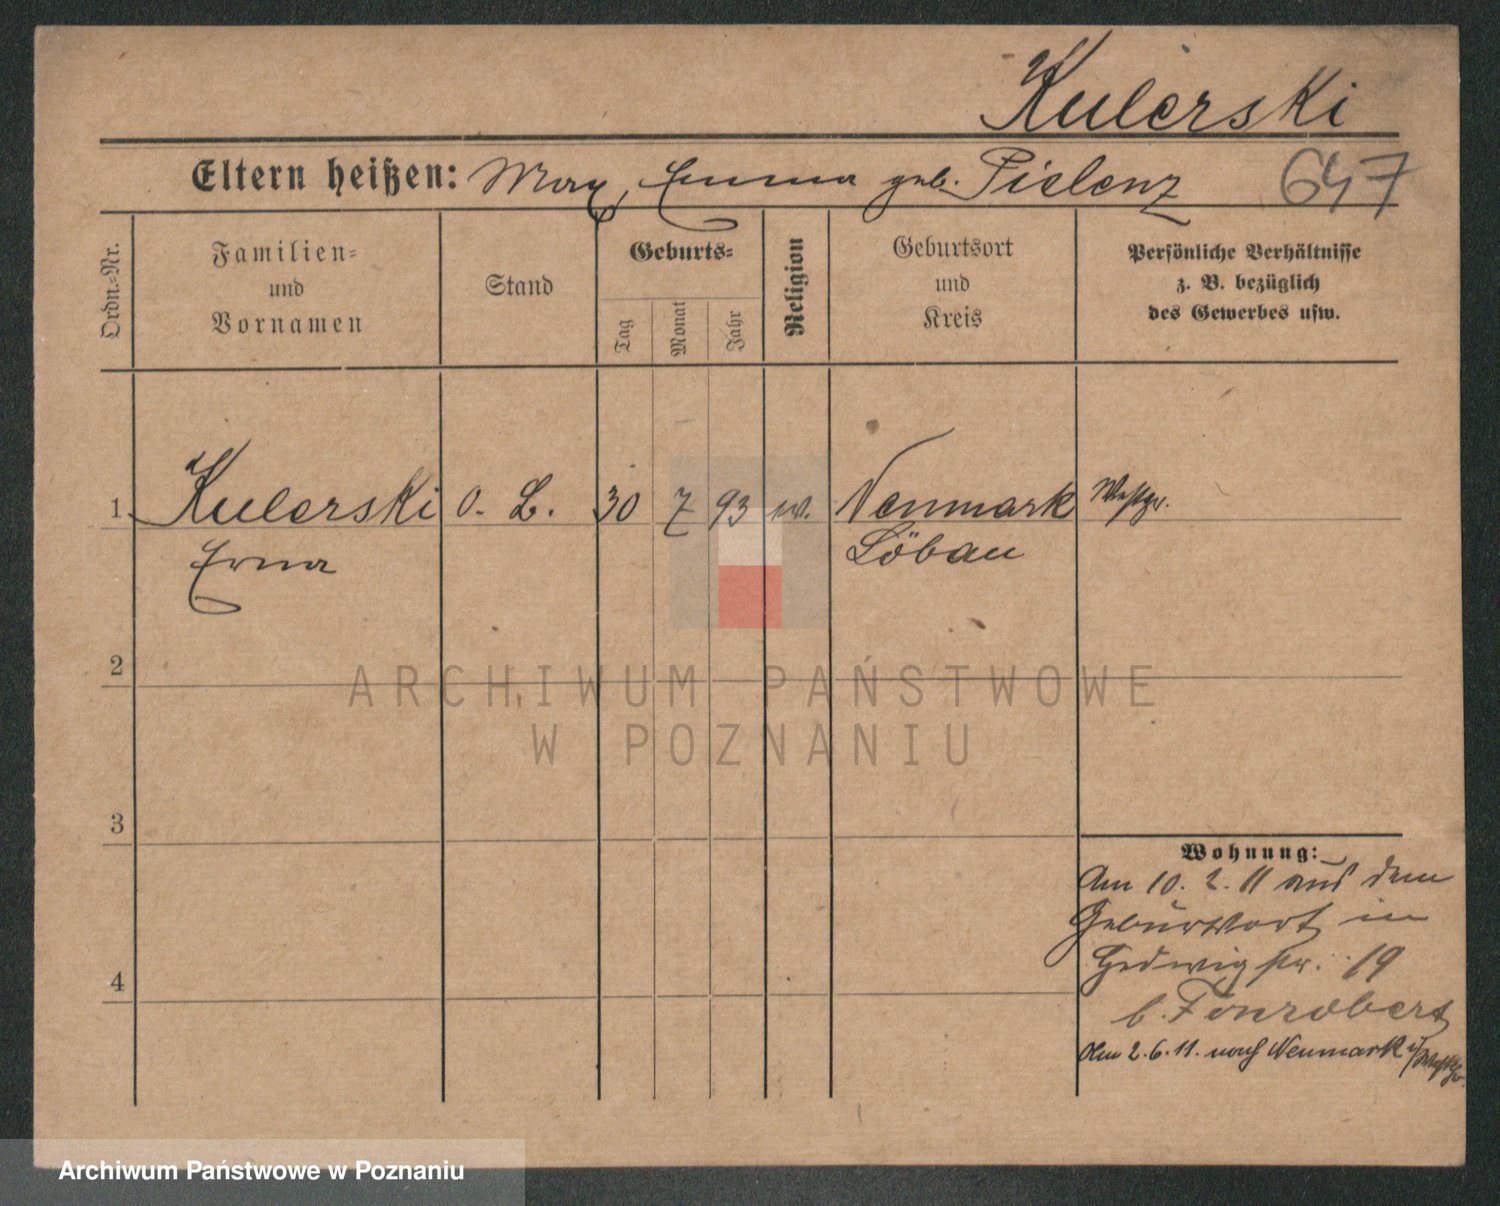 Kulerski
Eltern heißen: Max, Emma geb. Pielenz 647
Ordn.-Nr.
Familien-
und
Vornamen
Stand
Geburts-
Tag
Monat
Jahr
Religion
Geburtsort
und
Kreis
Persönliche Verhältnisse
z. B. bezüglich
des Gewerbes usw.
1 Kulerski o. B. 30 7 93 ev. Neumark Westpr.
Erna Löbau
2
3
4
Wohnung:
Am 10. 2. 11 aus dem
Geburtsort in
Hedwigstr. 19
b. Fonrobert
Am 2. 6. 11. nach Neumark i/Westpr.
ARCHIWUM PAŃSTWOWE
W POZNANIU
Archiwum Państwowe w Poznaniu